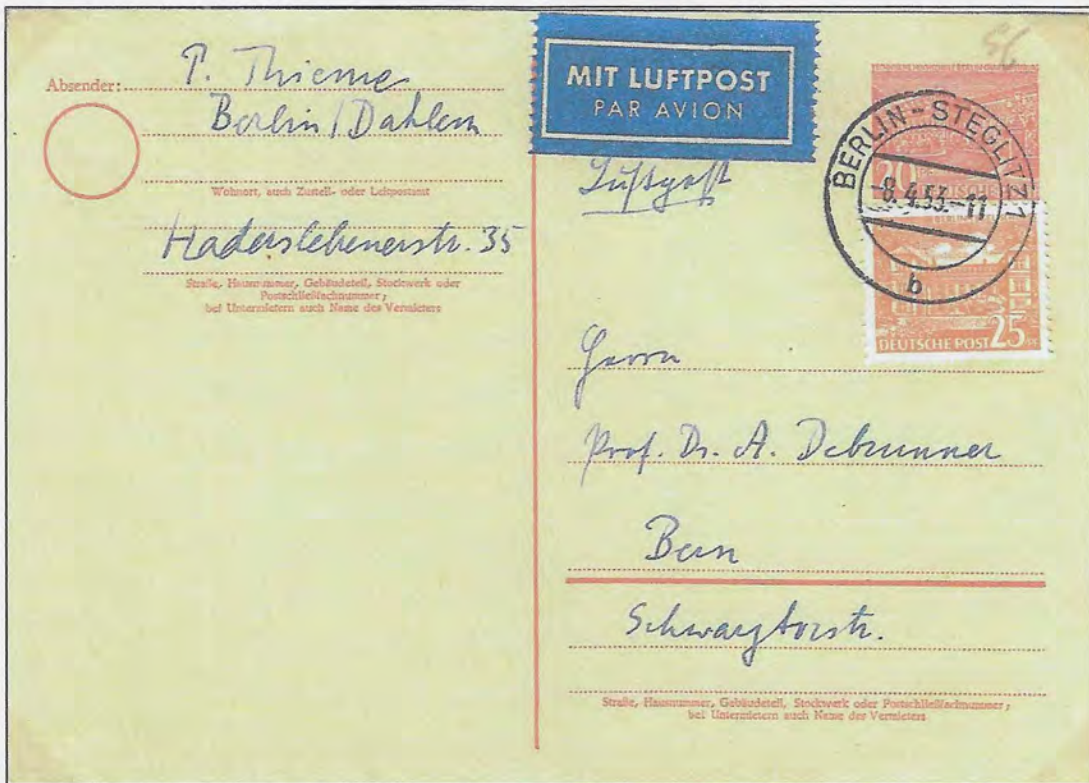 Absender: P. Thieme
Berlin/Dahlem
Wohnort, auch Zustell- oder Leitpostamt
Haderslebenerstr. 35
Straße, Hausnummer, Gebäudeteil, Stockwerk oder
Postschließfachnummer;
bei Untermietern auch Name des Vermieters
MIT LUFTPOST
PAR AVION
Luftpost
56
BERLIN-STEGLITZ 1
-8.4.53.-11
b
20
DEUTSCHE
DEUTSCHE POST 25 PF
Herrn
Prof. Dr. A. Debrunner
Bern
Schwarztorstr.
Straße, Hausnummer, Gebäudeteil, Stockwerk oder Postschließfachnummer;
bei Untermietern auch Name des Vermieters